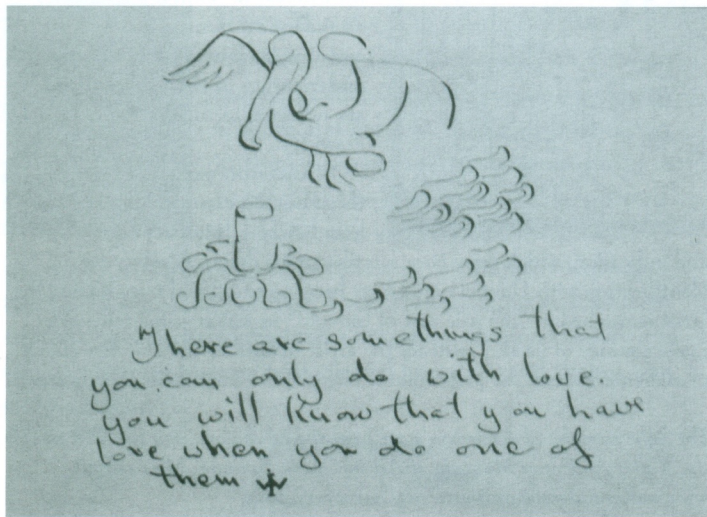 There are somethings that
you can only do with love.
you will know that you have
love when you do one of
them